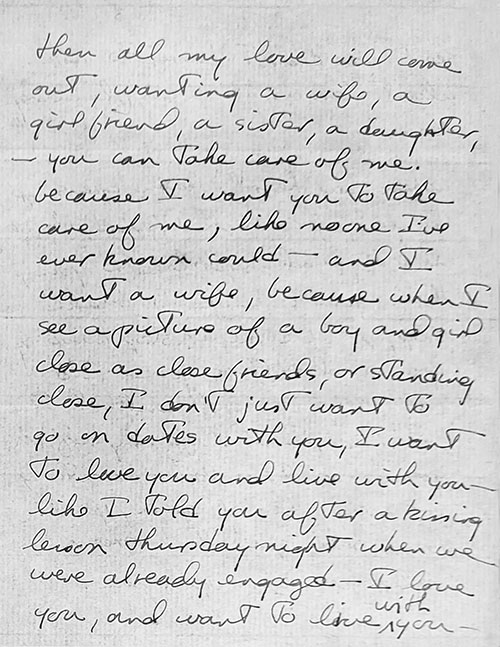 then all my love will come
out, wanting a wife, a
girlfriend, a sister, a daughter,
– you can take care of me.
because I want you to take
care of me, like noone I've
ever known could – and I
want a wife, because when I
see a picture of a boy and girl
close as close friends, or standing
close, I don't just want to
go on dates with you, I want
to love you and live with you –
like I told you after a kissing
lesson thursday night when we
were already engaged – I love
you, and want to live with you –